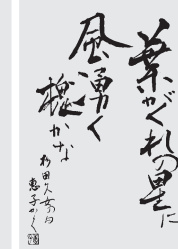 葉がくれの星に
風湧く
槐かな
杉田久女の句
恵子かく